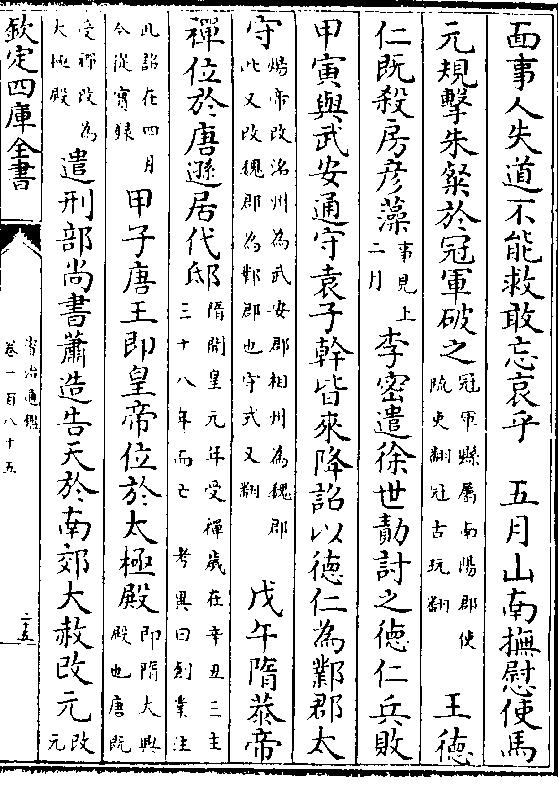 面事人失道不能救敢忘哀乎　五月山南撫慰使馬
元規擊朱粲於冠軍破之冠軍縣屬南陽郡使疏吏翻冠古玩翻　王德
仁既殺房彦藻事見上二月李密遣徐世勣討之德仁兵敗
甲寅與武安通守袁子幹皆來降詔以德仁為鄴郡太
守煬帝改洺州為武安郡相州為魏郡此又改魏郡為鄴郡也守式又翻　戊午隋恭帝
禪位於唐遜居代邸隋開皇元年受禪歲在辛丑三主三十八年而亡　考異曰創業注
此詔在四月今從實録甲子唐王即皇帝位於太極殿即隋大興殿也唐既
受禪改為大極殿遣刑部尚書蕭造告天於南郊大赦改元改元
欽定四庫全書
資治通鑑
卷一百八十五
二五